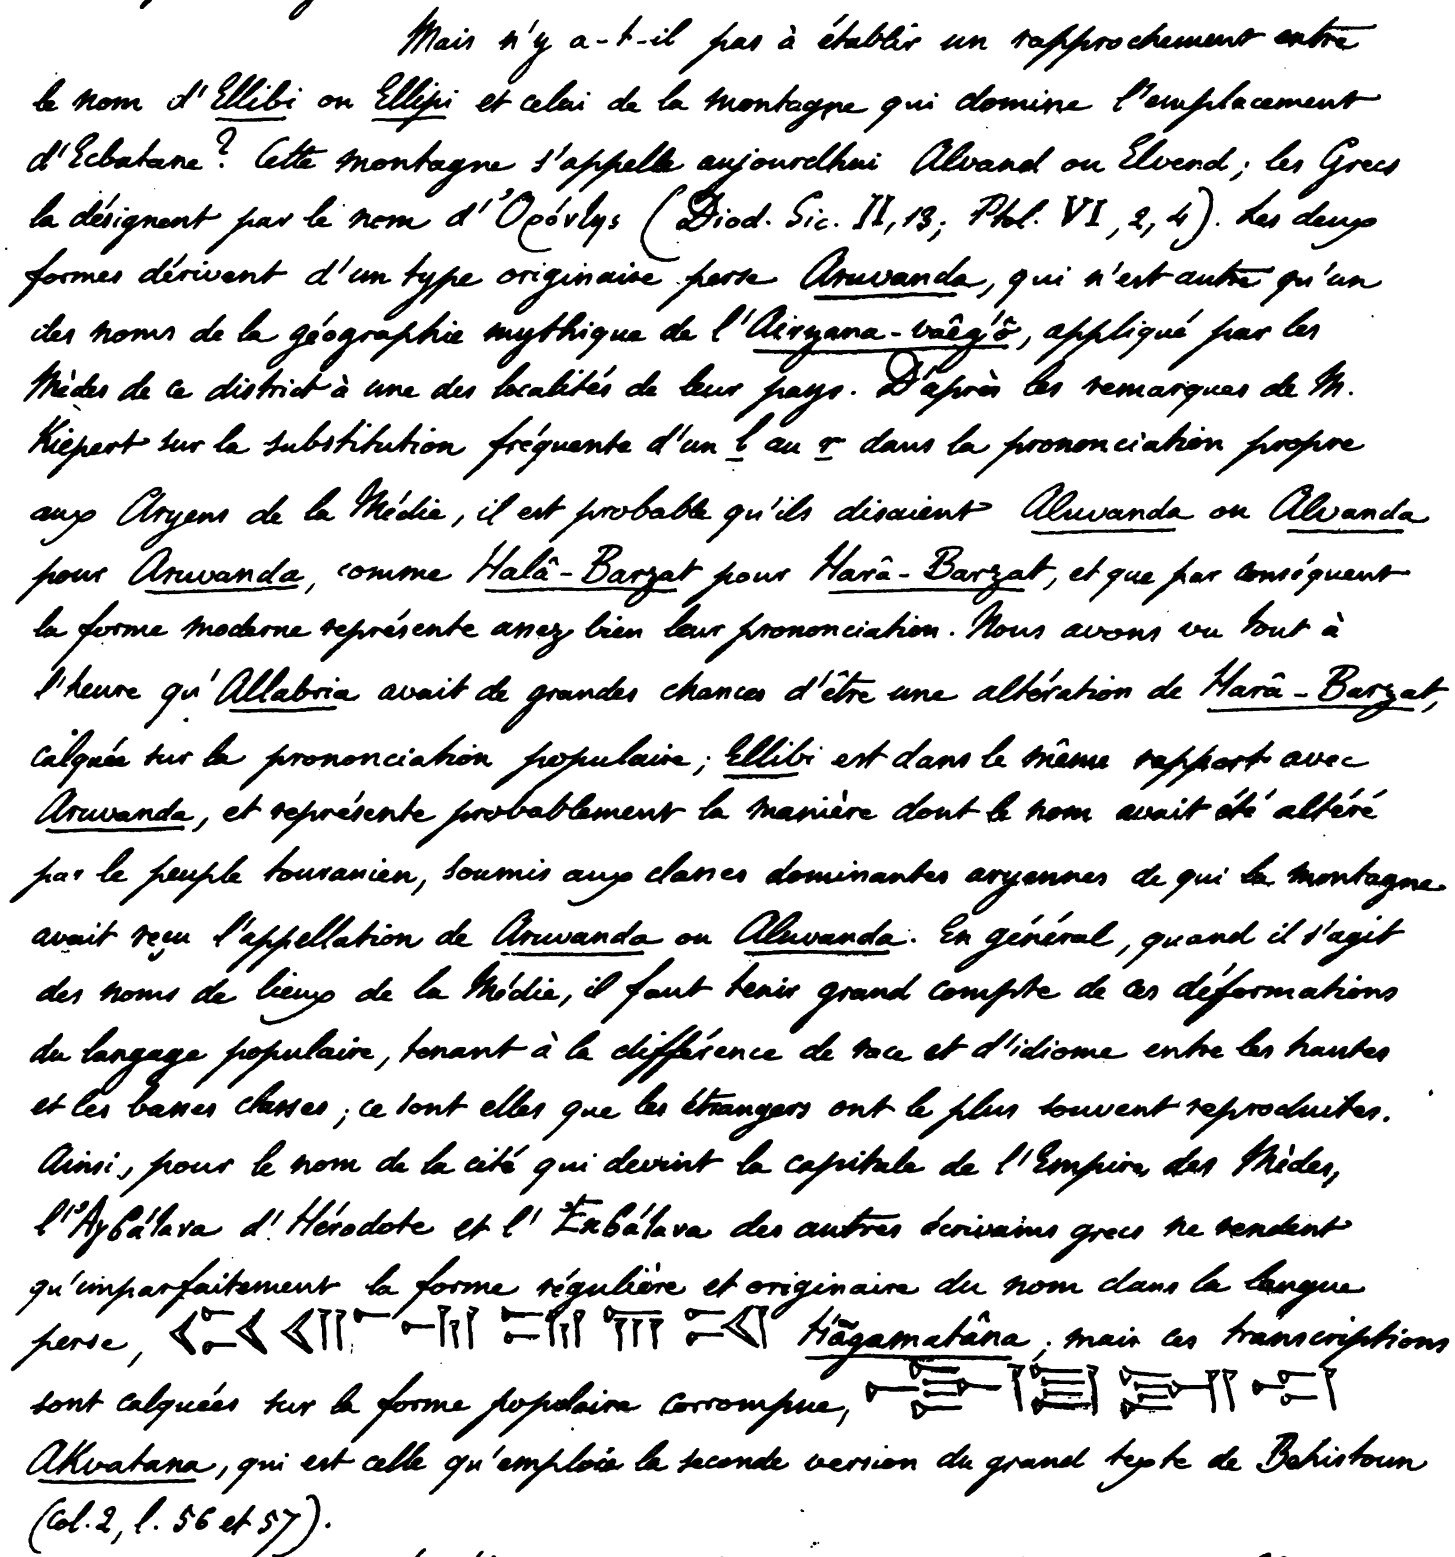 Mais n'y a-t-il pas à établir un rapprochement entre
le nom d'Ellibi ou Ellipi et celui de la montagne qui domine l'emplacement
d'Ecbatane? Cette montagne s'appelle aujourdhui Alvand ou Elvend; les Grecs
la désignent par le nom d'Ὀρόντης (Diod. Sic. II, 13; Ptol. VI, 2, 4). Les deux
formes dérivent d'un type originaire perse Aruvanda, qui n'est autre qu'un
des noms de la géographie mythique de l'Airyana-vaêg'ô, appliqué par les
Mèdes de ce district à une des localités de leur pays. D'après les remarques de M.
Kiepert sur la substitution fréquente d'un l au r dans la prononciation propre
aux Aryens de la Médie, il est probable qu'ils disaient Aluvanda ou Alvanda
pour Aruvanda, comme Halâ-Barzat pour Harâ-Barzat, et que par conséquent
la forme moderne représente assez bien leur prononciation. Nous avons vu tout à
l'heure qu'Allabria avait de grandes chances d'être une altération de Harâ-Barzat,
calquée sur la prononciation populaire; Ellibi est dans le même rapport avec
Aruvanda, et représente probablement la manière dont le nom avait été altéré
par le peuple touranien, soumis aux classes dominantes aryennes de qui la montagne
avait reçu l'appellation de Aruvanda ou Aluvanda. En général, quand il s'agit
des noms de lieux de la Médie, il faut tenir grand compte de ces déformations
du langage populaire, tenant à la différence de race et d'idiome entre les hautes
et les basses classes; ce sont elles que les étrangers ont le plus souvent reproduites.
Ainsi, pour le nom de la cité qui devint la capitale de l'Empire des Mèdes,
l'Ἀγβάτανα d'Hérodote et l'Ἐκβάτανα des autres écrivains grecs ne rendent
qu'imparfaitement la forme régulière et originaire du nom dans la langue
perse, 𐏃𐎥𐎶𐎫𐎠𐎴 Hãgamatâna; mais ces transcriptions
sont calquées sur la forme populaire corrompue,
AKvatana, qui est celle qu'emploie la seconde version du grand texte de Behistoun
(Col. 2, l. 56 et 57).